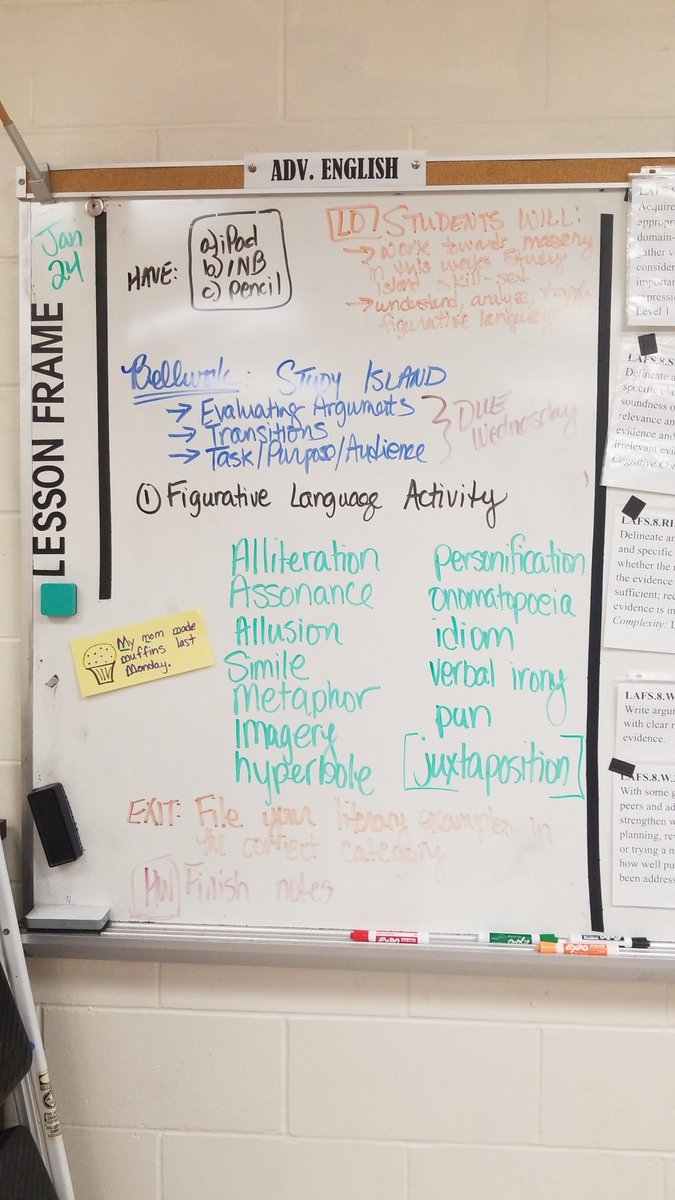 ADV. ENGLISH
Jan
24
LESSON FRAME
HAVE:
a) iPad
b) INB
c) pencil
LO: STUDENTS WILL:
→ work towards mastery
in this weeks Study
Island skill-set
→ understand, analyze, +
figurative language
Bellwork: STUDY ISLAND
→ Evaluating Arguments
→ Transitions
→ Task/Purpose/Audience
DUE
Wednesday
① Figurative Language Activity
Alliteration
Assonance
Allusion
Simile
Metaphor
Imagery
hyperbole
personification
onomatopoeia
idiom
verbal irony
pun
[juxtaposition]
My mom made
muffins last
Monday.
EXIT: File your literary examples in
the correct category
HW Finish notes
Acquire
appropri
domain-
gather v
consider
importan
expressi
Level 1
Delineate a
specific cla
soundness o
relevance an
evidence and
irrelevant evi
Cognitive Co
LAFS.8.RI
Delineate an
and specific
whether the
the evidence
sufficient; rec
evidence is in
Complexity: L
LAFS.8.W
Write argu
with clear r
evidence.
LAFS.8.W.
With some g
peers and ad
strengthen w
planning, rev
or trying a n
how well pu
been address
EXPO
EXPO
EXPO
EXPO